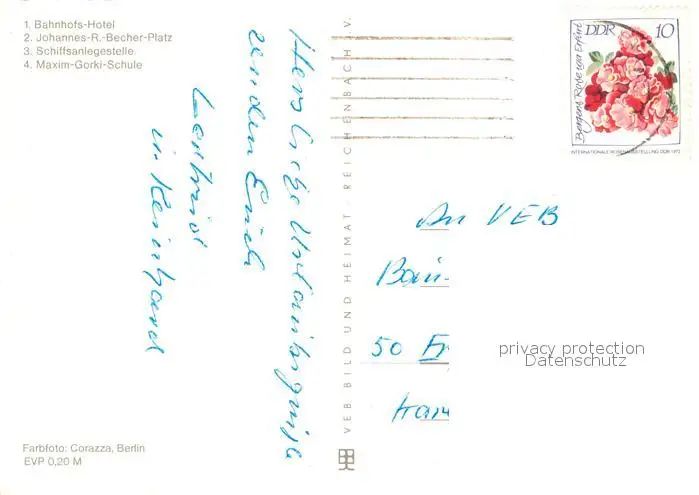 1. Bahnhofs-Hotel
2. Johannes-R.-Becher-Platz
3. Schiffsanlegestelle
4. Maxim-Gorki-Schule
Herzliche Urlaubsgrüße
senden Euch
u. Reinhard
VEB BILD UND HEIMAT · REICHENBACH I. V.
DDR 10
INTERNATIONALE ROSENAUSSTELLUNG DDR 1972
An VEB
Bau-
50 Er
privacy protection
Datenschutz
Farbfoto: Corazza, Berlin
EVP 0,20 M